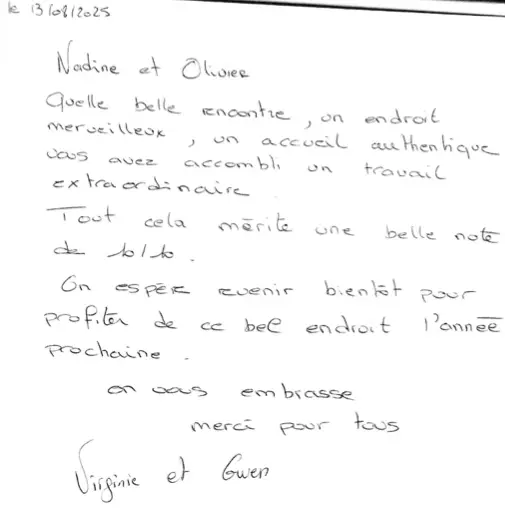 le 13/08/2025
Nadine et Olivier
Quelle belle rencontre, un endroit
merveilleux, un accueil authentique
vous avez accompli un travail
extraordinaire
Tout cela mérite une belle note
de 10/10.
On espère revenir bientôt pour
profiter de ce bel endroit l'année
prochaine.
on vous embrasse
merci pour tous
Virginie et Gwen